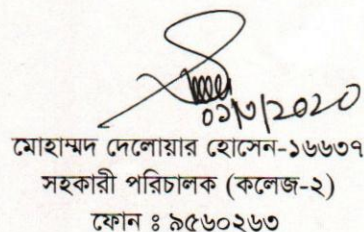 ০১/৩/2020
মোহাম্মদ দেলোয়ার হোসেন-১৬৬৩৭
সহকারী পরিচালক (কলেজ-২)
ফোন ঃ ৯৫৬০২৬৩